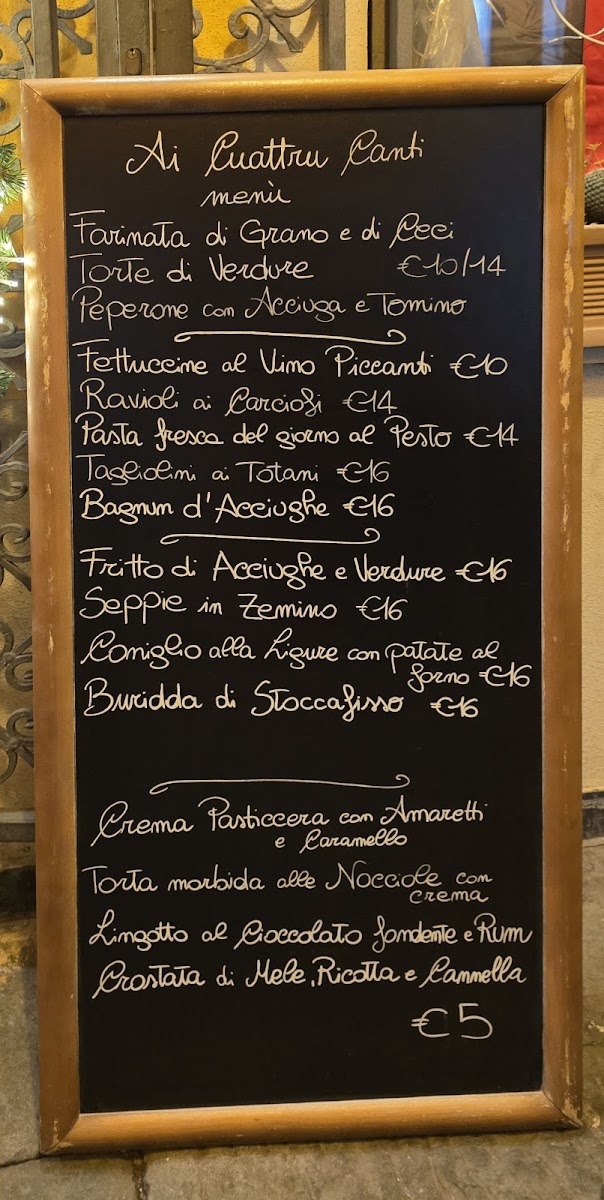 Ai Cuattru Canti
menù
Farinata di Grano e di Ceci
Torte di Verdure €10/14
Peperone con Acciuga e Tomino
Fettuccine al Vino Piccanti €10
Ravioli ai Carciofi €14
Pasta fresca del giorno al Pesto €14
Tagliolini ai Totani €16
Bagnun d'Acciughe €16
Fritto di Acciughe e Verdure €16
Seppie in Zemino €16
Coniglio alla Ligure con patate al
forno €16
Buridda di Stoccafisso €16
Crema Pasticcera con Amaretti
e Caramello
Torta morbida alle Nocciole con
crema
Lingotto al Cioccolato fondente e Rum
Crostata di Mele, Ricotta e Cannella
€5